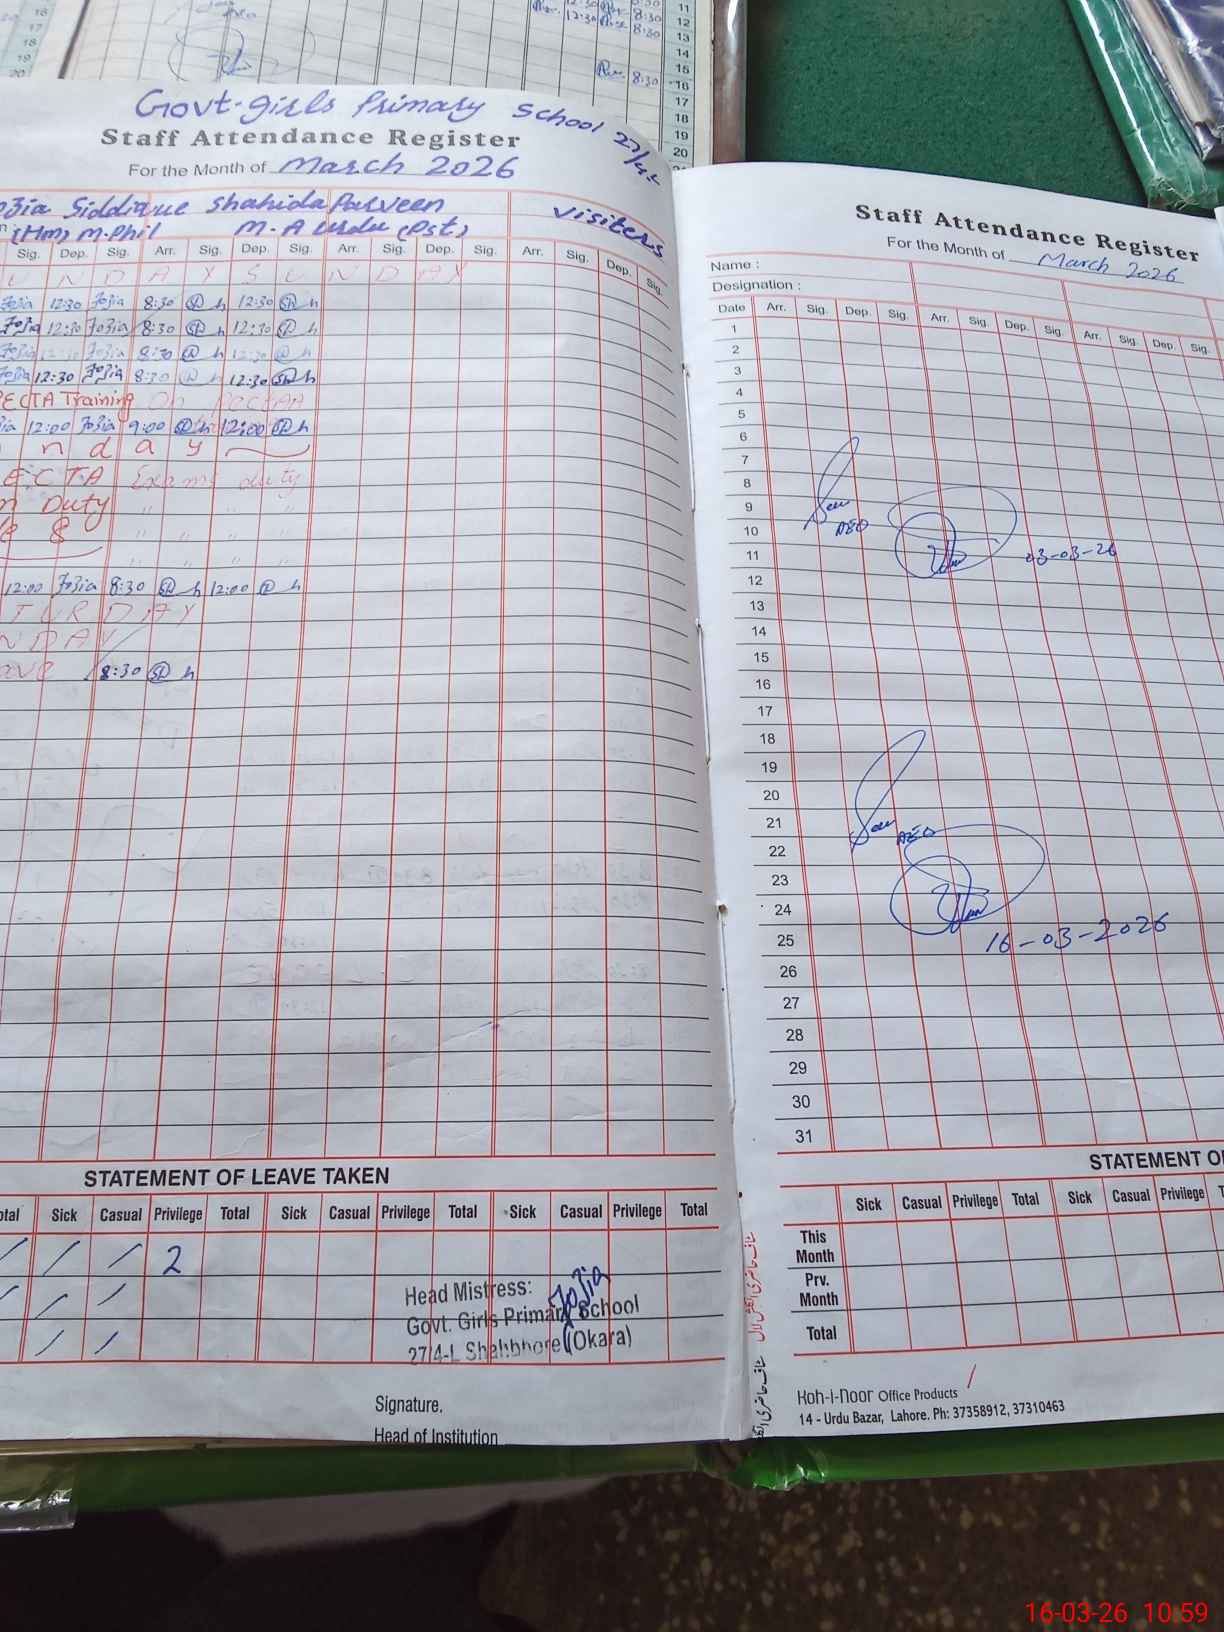 11
12
13
14
15
16
17
18
19
20
16
17
18
19
20
12:30
8:30
12:30
8:30
8:30
Govt-girls Primary School 27/4-L
Staff Attendance Register
For the Month of March 2026
Siddique Shahida Parveen
visiters
(Hm) M.Phil M.A Urdu (Pst)
Sig. Dep. Sig. Arr. Sig. Dep. Sig. Arr. Sig. Dep. Sig. Arr. Sig. Dep. Sig.
U N D A Y S U N D A Y
Fozia 12:30 Fozia 8:30 12:30
Fozia 12:30 Fozia 8:30 12:30
Fozia 12:30 Fozia 8:30 12:30
Fozia 12:30 Fozia 8:30 12:30
PECTA Training On
12:00 Fozia 9:00 12:00
n d a y
E.C.T.A Exams duty
Duty " " "
8 " " "
" " "
12:00 Fozia 8:30 12:00
T U R D A Y
N D A Y
8:30
STATEMENT OF LEAVE TAKEN
Sick Casual Privilege Total Sick Casual Privilege Total Sick Casual Privilege Total
2
Head Mistress: Fozia
Govt. Girls Primary School
27/4-L (Okara)
Signature.
Head of Institution
Staff Attendance Register
For the Month of March 2026
Name :
Designation :
Date Arr. Sig. Dep. Sig. Arr. Sig. Dep. Sig. Arr. Sig. Dep. Sig.
1
2
3
4
5
6
7
8
9
10 AEO
11 03-03-26
12
13
14
15
16
17
18
19
20
21
22 AEO
23
24
25 16-03-2026
26
27
28
29
30
31
STATEMENT O
Sick Casual Privilege Total Sick Casual Privilege T
This Month
Prv. Month
Total
Koh-I-Noor Office Products
14 - Urdu Bazar, Lahore. Ph: 37358912, 37310463
16-03-26 10:59